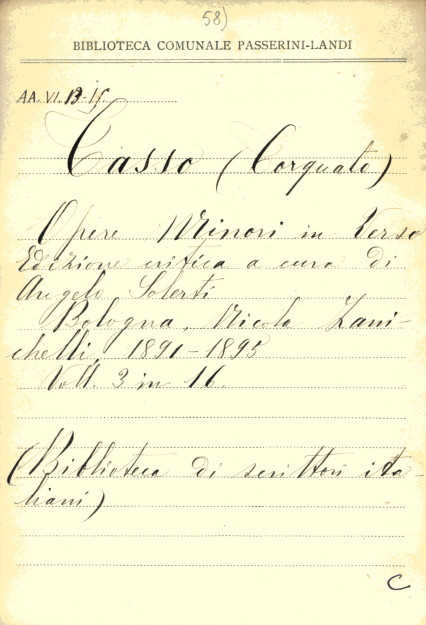 58)
BIBLIOTECA COMUNALE PASSERINI-LANDI
AA. VI. 13-15.
Tasso (Torquato)
Opere Minori in Verso
Edizione critica a cura di
Angelo Solerti
Bologna, Nicola Zani-
chelli, 1891-1895
Voll. 3 in 16.
(Biblioteca di scrittori ita-
liani)
C